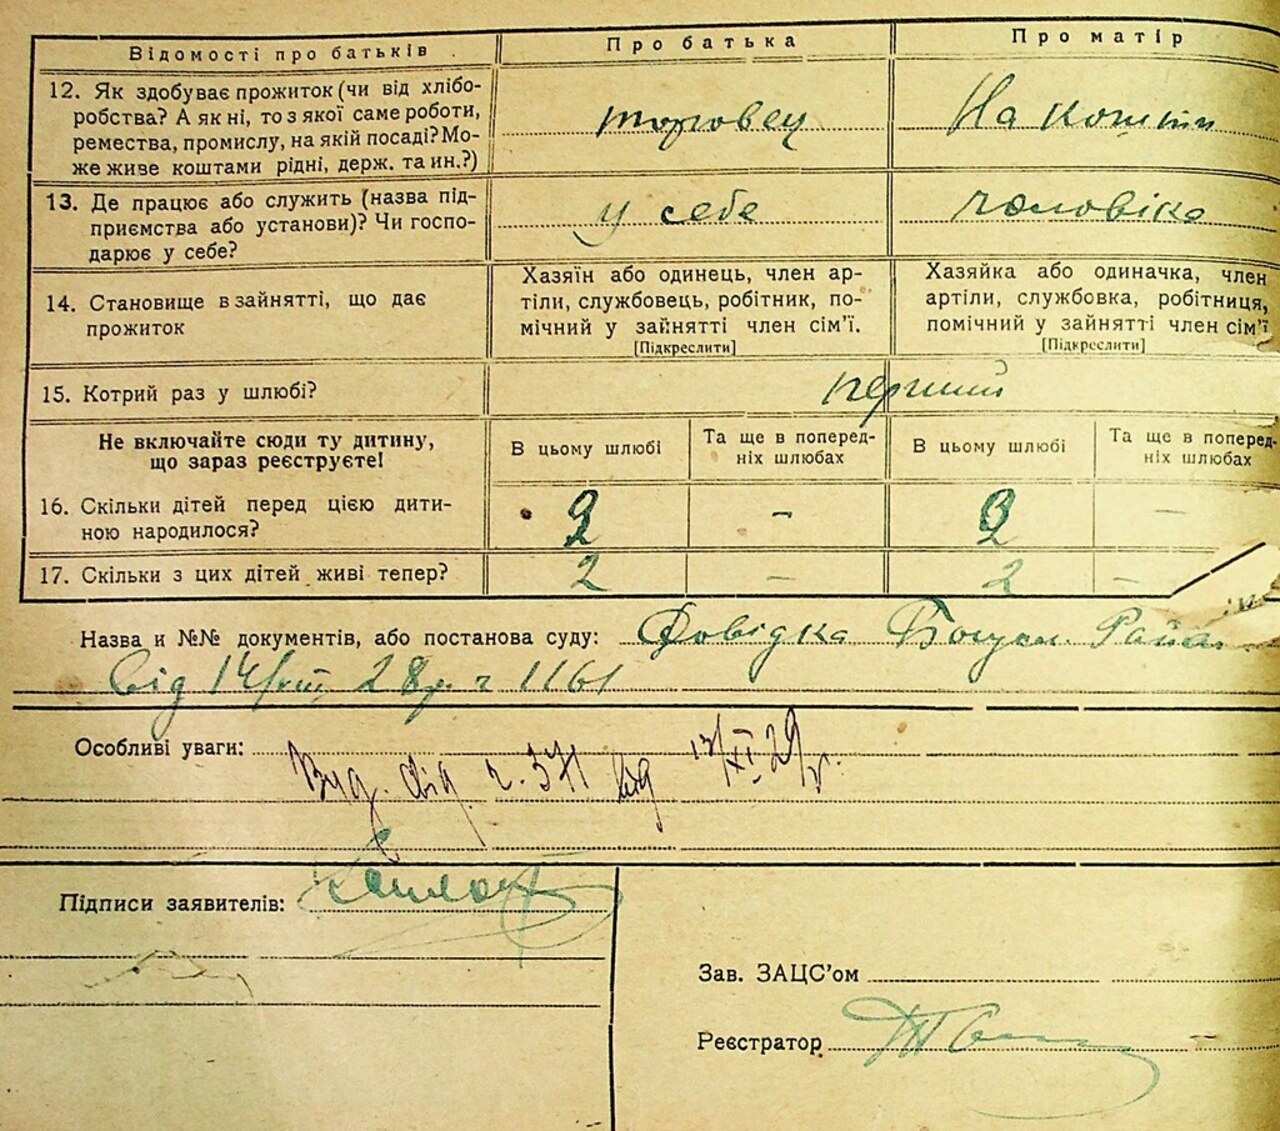 Відомості про батьків
Про батька
Про матір
12. Як здобуває прожиток (чи від хлібо-
робства? А як ні, то з якої саме роботи,
ремества, промислу, на якій посаді? Мо-
же живе коштами рідні, держ. та ин.?)
торговец
На кошти
13. Де працює або служить (назва під-
приємства або установи)? Чи госпо-
дарює у себе?
у себе
чоловіка
14. Становище в зайнятті, що дає
прожиток
Хазяїн або одинець, член ар-
тіли, службовець, робітник, по-
мічний у зайнятті член сім'ї.
[Підкреслити]
Хазяйка або одиначка, член
артіли, службовка, робітниця,
помічний у зайнятті член сім'ї
[Підкреслити]
15. Котрий раз у шлюбі?
перший
Не включайте сюди ту дитину,
що зараз реєструєте!
В цьому шлюбі
Та ще в поперед-
ніх шлюбах
В цьому шлюбі
Та ще в поперед-
ніх шлюбах
16. Скільки дітей перед цією дити-
ною народилося?
2 - 2 -
17. Скільки з цих дітей живі тепер?
2 - 2 -
Назва и №№ документів, або постанова суду: Довідка Богусл. Рай
від 14/VIII 28р. ч 1161
Особливі уваги:
Вид. свід. ч. 371 від 13/XI 29р.
Підписи заявителів:
Зав. ЗАЦС'ом
Реєстратор